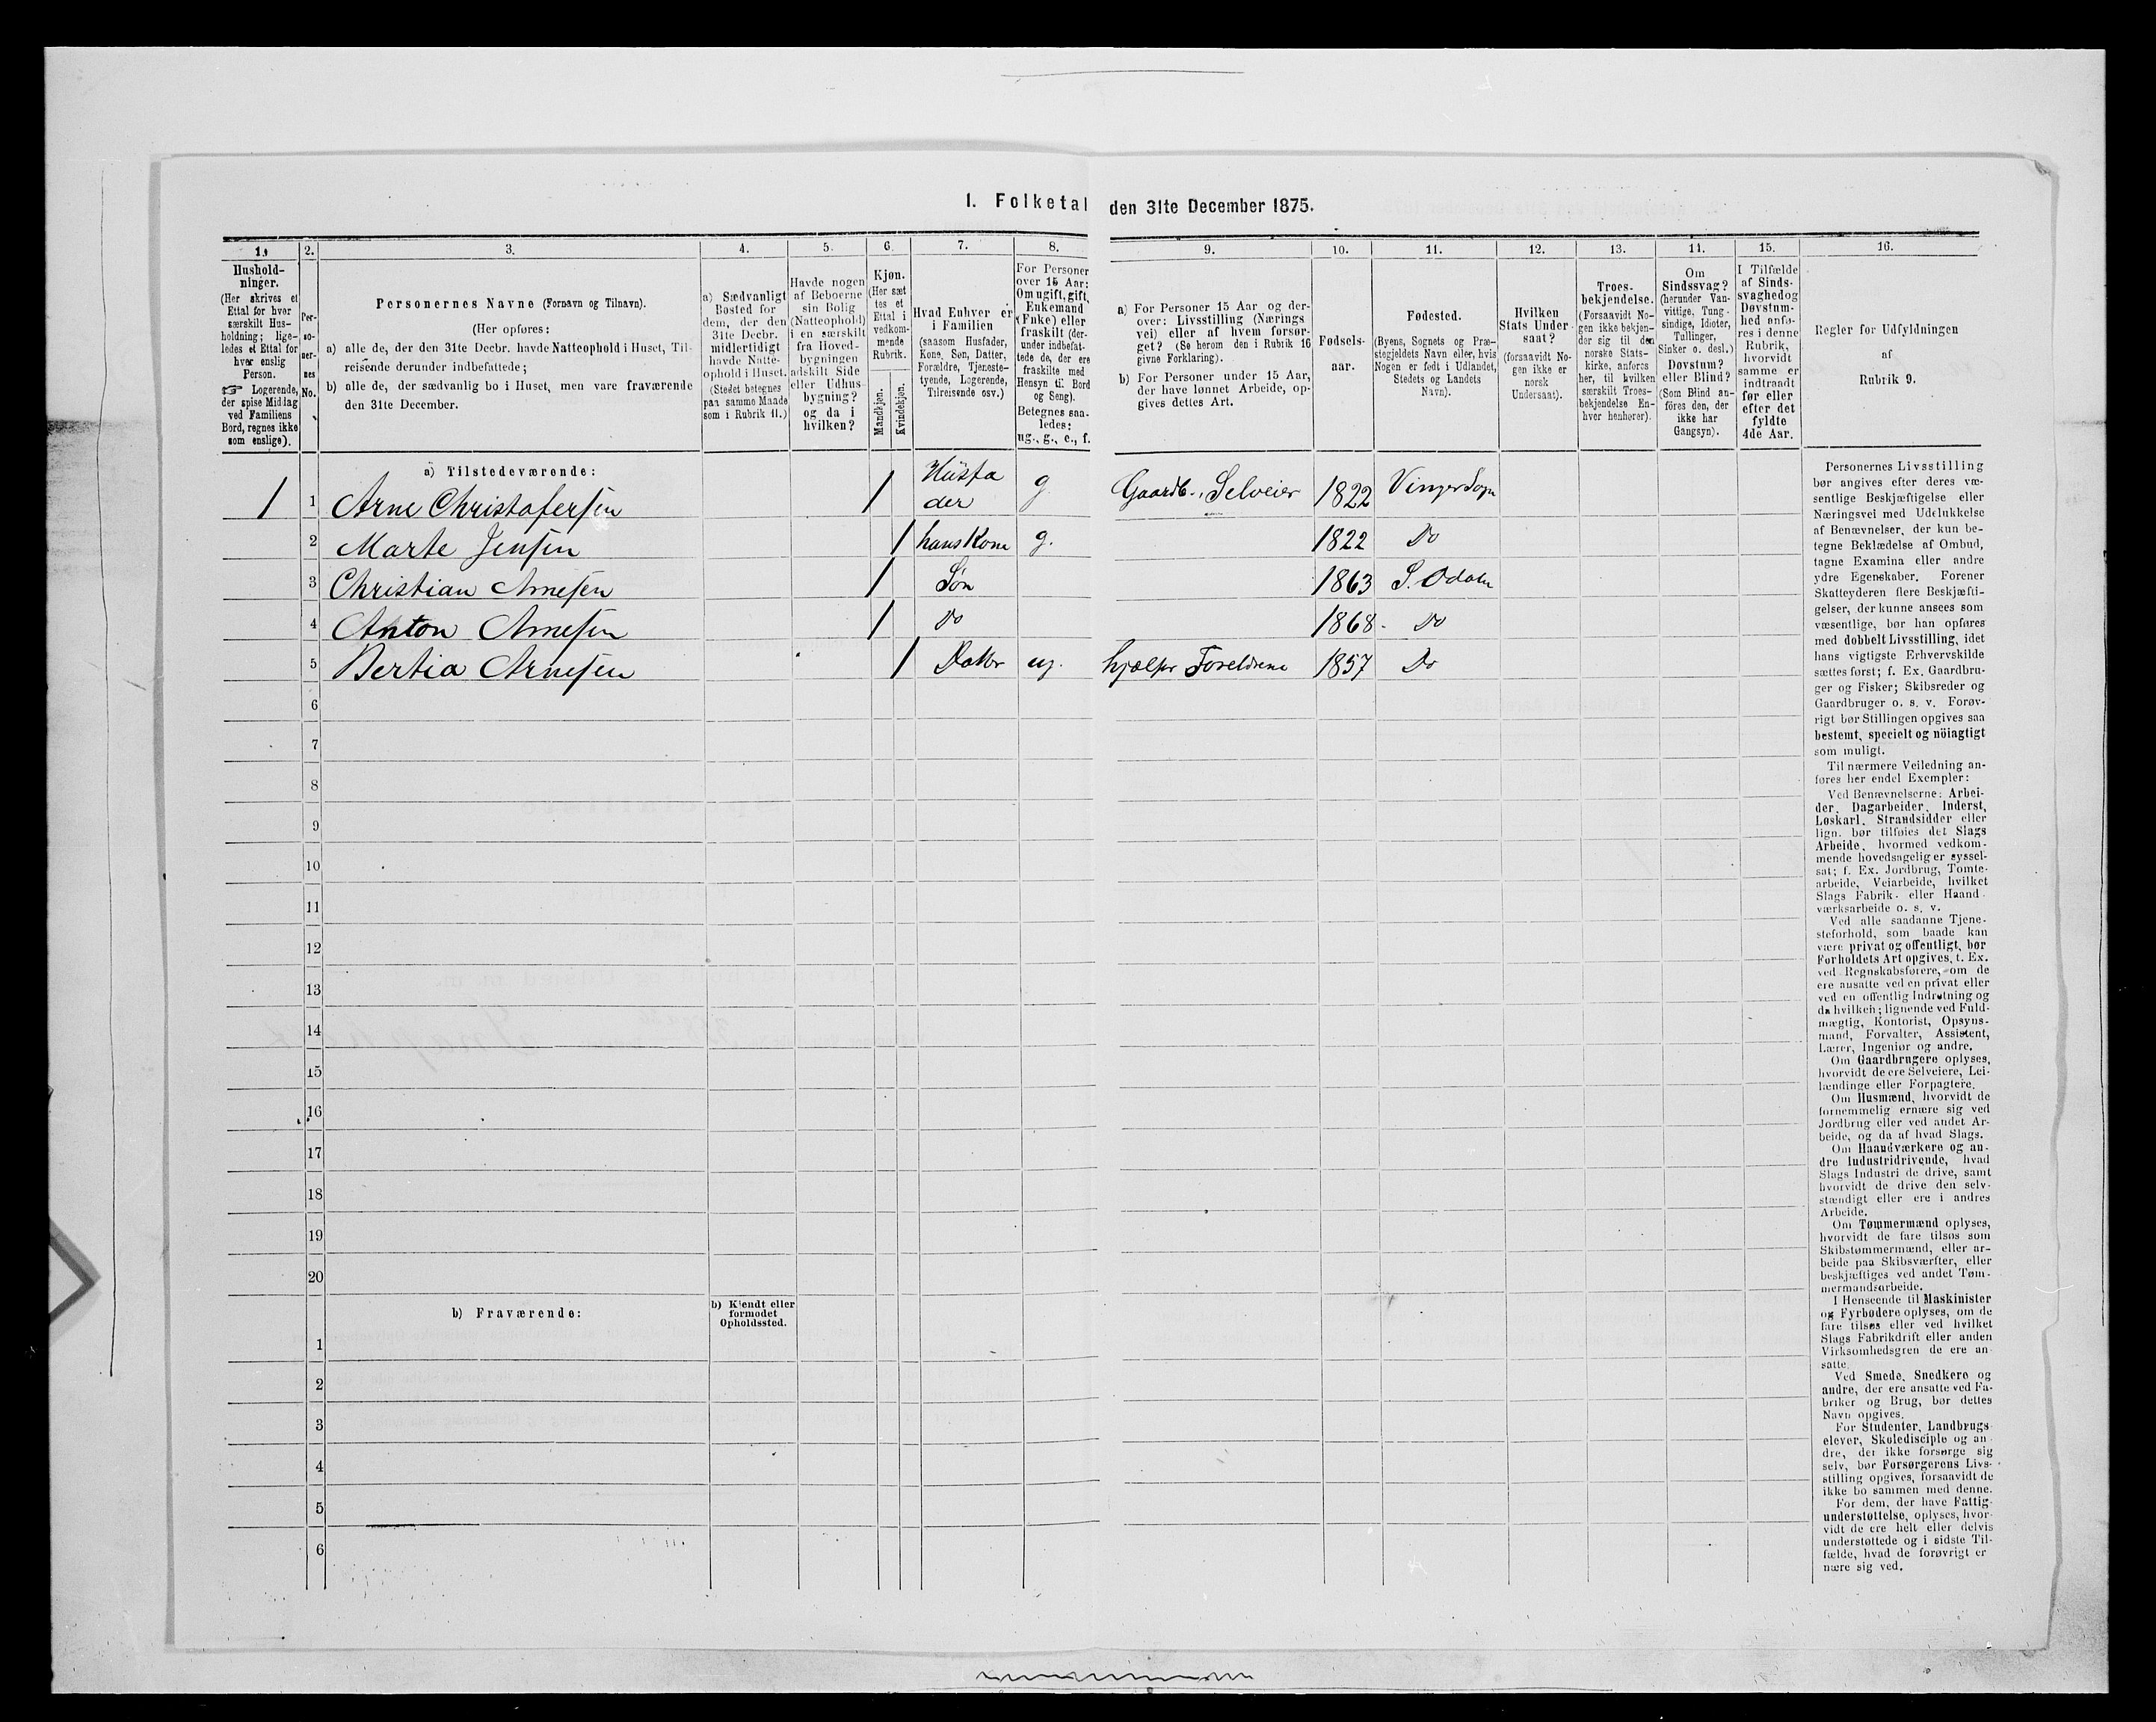 1. Folketal den 31te December 1875.
1. 2. 3. 4. 5. 6. 7. 8. 9. 10. 11. 12. 13. 14. 15. 16.
Hushold-
ninger.
(Her skrives et
Ettal for hver
særskilt Hus-
holdning; lige-
ledes et Ettal for
hver enslig
Person.
☞ Logerende,
der spise Middag
ved Familiens
Bord, regnes ikke
som enslige).
Per-
so-
ner-
nes
No.
Personernes Navne (Fornavn og Tilnavn).
(Her opføres:
a) alle de, der den 31te Decbr. havde Natteophold i Huset, Til-
reisende derunder indbefattede;
b) alle de, der sædvanlig bo i Huset, men vare fraværende
den 31te December.
a) Sædvanligt
Bosted for
dem, der den
31te Decbr.
midlertidigt
havde Natte-
ophold i Huset.
(Stedet betegnes
paa samme Maade
som i Rubrik 11.)
Havde nogen
af Beboerne
sin Bolig
(Natteophold)
i en særskilt
fra Hoved-
bygningen
adskilt Side
eller Udhus-
bygning?
og da i
hvilken?
Kjøn.
(Her sæt
tes et
Ettal i
vedkom-
mende
Rubrik.
Mandkjøn.
Kvindekjøn.
Hvad Enhver er
i Familien
(saasom Husfader,
Kone, Søn, Datter,
Forældre, Tjeneste-
tyende, Logerende,
Tilreisende osv.)
For Personer
over 15 Aar:
Om ugift, gift,
Enkemand
(Enke) eller
fraskilt (der-
under indbefat-
tede de, der ere
fraskilte med
Hensyn til Bord
og Seng).
Betegnes saa-
ledes:
ug., g., e., f.
a) For Personer 15 Aar og der-
over: Livsstilling (Nærings
vei) eller af hvem forsør-
get? (Se herom den i Rubrik 16
givne Forklaring).
b) For Personer under 15 Aar,
der have lønnet Arbeide, op-
gives dettes Art.
Fødsels-
aar.
Fødested.
(Byens, Sognets og Præ-
stegjeldets Navn eller, hvis
Nogen er født i Udlandet,
Stedets og Landets
Navn).
Hvilken
Stats Under-
saat?
(forsaavidt No-
gen ikke er
norsk
Undersaat).
Troes-
bekjendelse.
(Forsaavidt No-
gen ikke bekjen-
der sig til den
norske Stats-
kirke, anføres
her, til hvilken
særskilt Troes-
bekjendelse En-
hver henhører).
Om
Sindssvag?
(herunder Van-
vittige, Tung-
sindige, Idioter,
Tullinger,
Sinker o. desl.)
Døvstum?
eller Blind?
(Som Blind an-
føres den, der
ikke har
Gangsyn).
I Tilfælde
af Sinds-
svaghed og
Døvstum-
hed anfø-
res i denne
Rubrik,
hvorvidt
samme er
indtraadt
før eller
efter det
fyldte
4de Aar.
Regler for Udfyldningen
af
Rubrik 9.
a) Tilstedeværende:
1 1 Arne Christofersen 1 Husfa
der g Gaardb., Selveier 1822 Vinger Sogn
2 Marte Jensen 1 hans Kone g. 1822 Do
3 Christian Arnesen 1 Søn 1863 S. Odalen
4 Anton Arnesen 1 Do 1868 Do
5 Bertia Arnesen 1 Datter ug. hjælper Foreldrene 1857 Do
6
7
8
9
10
11
12
13
14
15
16
17
18
19
20
b) Fraværende:
b) Kjendt eller
formodet
Opholdssted.
1
2
3
4
5
6
Personernes Livsstilling
bør angives efter deres væ-
sentlige Beskjæftigelse eller
Næringsvei med Udelukkelse
af Benævnelser, der kun be-
tegne Beklædelse af Ombud,
tagne Examina eller andre
ydre Egenskaber. Forener
Skatteyderen flere Beskjæfti-
gelser, der kunne ansees som
væsentlige, bør han opføres
med dobbelt Livsstilling, idet
hans vigtigste Erhvervskilde
sættes først; f. Ex. Gaardbru-
ger og Fisker; Skibsreder og
Gaardbruger o. s. v. Forøv-
rigt bør Stillingen opgives saa
bestemt, specielt og nöiagtigt
som muligt.
Til nærmere Veiledning an-
føres her endel Exempler:
Ved Benævnelserne: Arbei-
der, Dagarbeider, Inderst,
Løskarl, Strandsidder eller
lign. bør tilføies det Slags
Arbeide, hvormed vedkom-
mende hovedsagelig er syssel-
sat; f. Ex. Jordbrug, Tomte-
arbeide, Veiarbeide, hvilket
Slags Fabrik- eller Haand-
værksarbeide o. s. v.
Ved alle saadanne Tjene-
steforhold, som baade kan
være privat og offentligt, bør
Forholdets Art opgives, t. Ex.
ved Regnskabsførere, om de
ere ansatte ved en privat eller
ved en offentlig Indretning og
da hvilken; lignende ved Fuld-
mægtig, Kontorist, Opsyns-
mand, Forvalter, Assistent,
Lærer, Ingeniør og andre.
Om Gaardbrugere oplyses,
hvorvidt de ere Selveiere, Lei-
lændinge eller Forpagtere.
Om Husmænd, hvorvidt de
fornemmelig ernære sig ved
Jordbrug eller ved andet Ar-
beide, og da af hvad Slags.
Om Haandværkere og an-
dre Industridrivende, hvad
Slags Industri de drive, samt
hvorvidt de drive den selv-
stændigt eller ere i andres
Arbeide.
Om Tømmermænd oplyses,
hvorvidt de fare tilsøs som
Skibstømmermænd, eller ar-
beide paa Skibsværfter, eller
beskjæftiges ved andet Tøm-
mermandsarbeide.
I Henseende til Maskinister
og Fyrbødere oplyses, om de
fare tilsøs eller ved hvilket
Slags Fabrikdrift eller anden
Virksomhedsgren de ere an-
satte.
Ved Smede, Snedkere og
andre, der ere ansatte ved Fa-
briker og Brug, bør dettes
Navn opgives.
For Studenter, Landbrugs-
elever, Skoledisciple og an-
dre, der ikke forsørge sig
selv, bør Forsørgerens Livs-
stilling opgives, forsaavidt de
ikke bo sammen med denne.
For dem, der have Fattig-
understøttelse, oplyses, hvor-
vidt de ere helt eller delvis
understøttede og i sidste Til-
fælde, hvad de forøvrigt er
nære sig ved.